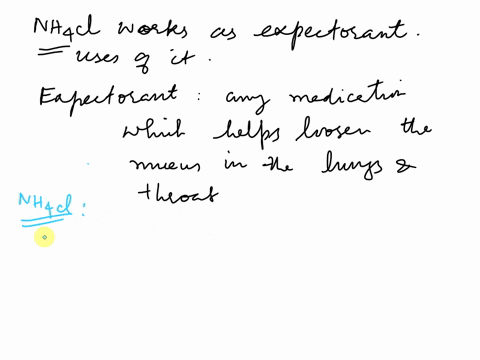 NH4Cl works as expectorant.
uses of it.
Expectorant : any medication
which helps loosen the
mucus in the lungs &
throat
NH4Cl :